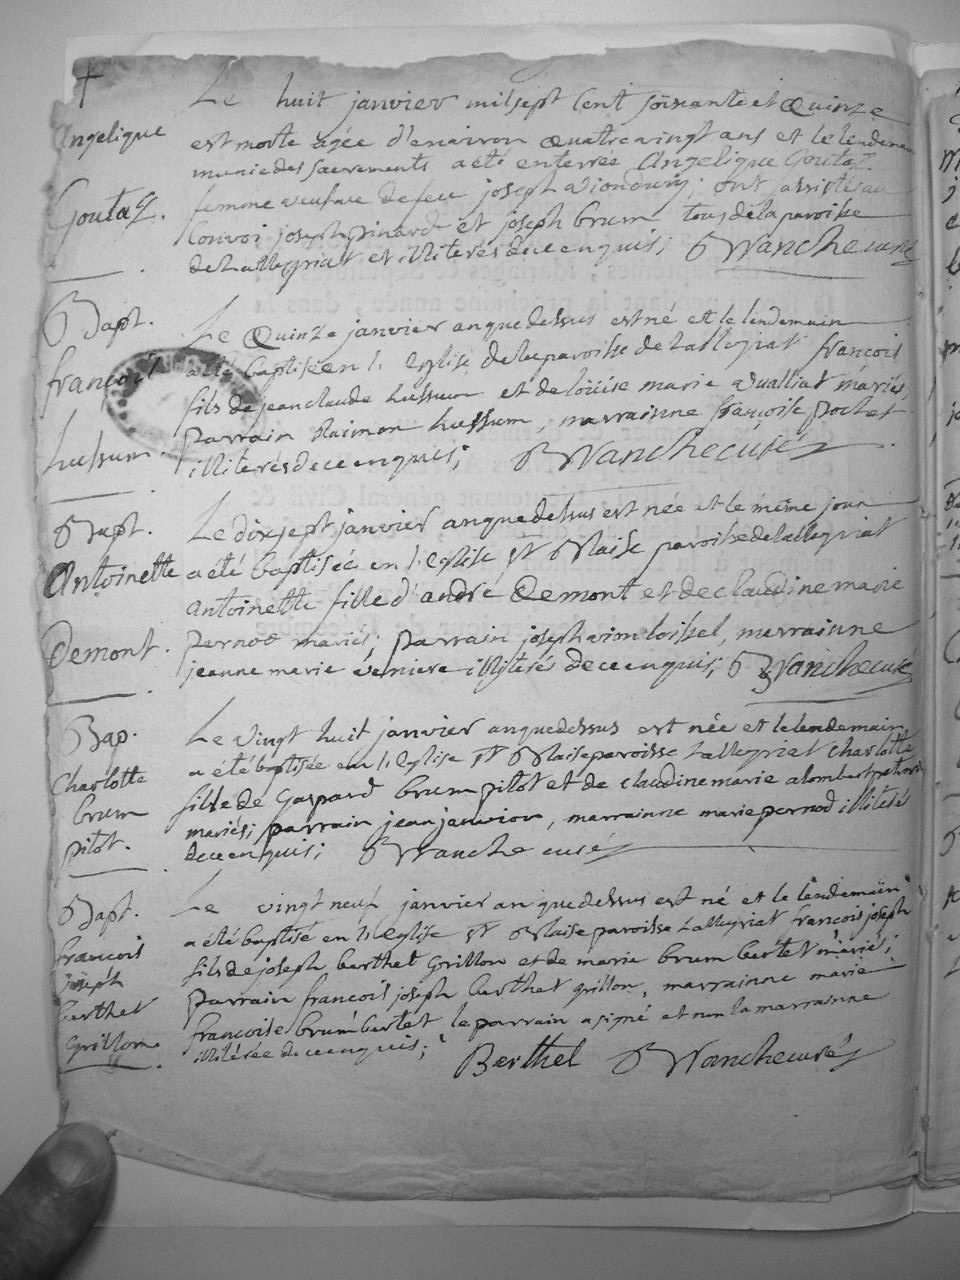 Angelique
Goutaz.
Le huit janvier mil sept cent soixante et Quinze
est morte agée d'environ Quatre vingt ans et le lendemain
munie des sacrements a été enterrée Angelique Goutaz
femme veufve de feu joseph ; ont assisté au
Convoi joseph pinard et joseph brum tous de la paroisse
de Lalleyriat et illiterés de ce enquis; Blanche curé
Bapt.
françois
hussum.
Le Quinze janvier an que dessus est né et le lendemain
a été baptisé en l'Eglise de la paroisse de Lalleyriat françois
fils de jean claude hussum et de loüise marie Vualliat mariés,
parrain Raimon hussum, marrainne françoise pochet
illiterés de ce enquis; Blanche curé
Bapt.
Antoinette
Demont.
Le dix sept janvier an que dessus est née et le même jour
a été baptisée en l'Eglise St Blaise paroisse de Lalleyriat
Antoinette fille d'andré Demont et de claudine marie
pernod mariés; parrain joseph , marrainne
jeanne marie illiterés de ce enquis; Blanche curé
Bap.
Charlotte
brum
pitot.
Le vingt huit janvier an que dessus est née et le lendemain
a été baptisée en l'Eglise St Blaise paroisse Lalleyriat Charlotte
fille de Gaspard brum pitot et de claudine marie alombert
mariés; parrain jean janvion, marrainne marie pernod illiterés
de ce enquis; Blanche curé
Bapt.
francois
joseph
berthet
Grillon
Le vingt neuf janvier an que dessus est né et le lendemain
a été baptisé en l'Eglise St Blaise paroisse Lalleyriat francois joseph
fils de joseph berthet Grillon et de marie brum bertet mariés;
parrain francois joseph berthet grillon, marrainne marie
françoise brum bertet le parrain a signé et non la marrainne
illitérée de ce enquis; Berthet Blanche curé